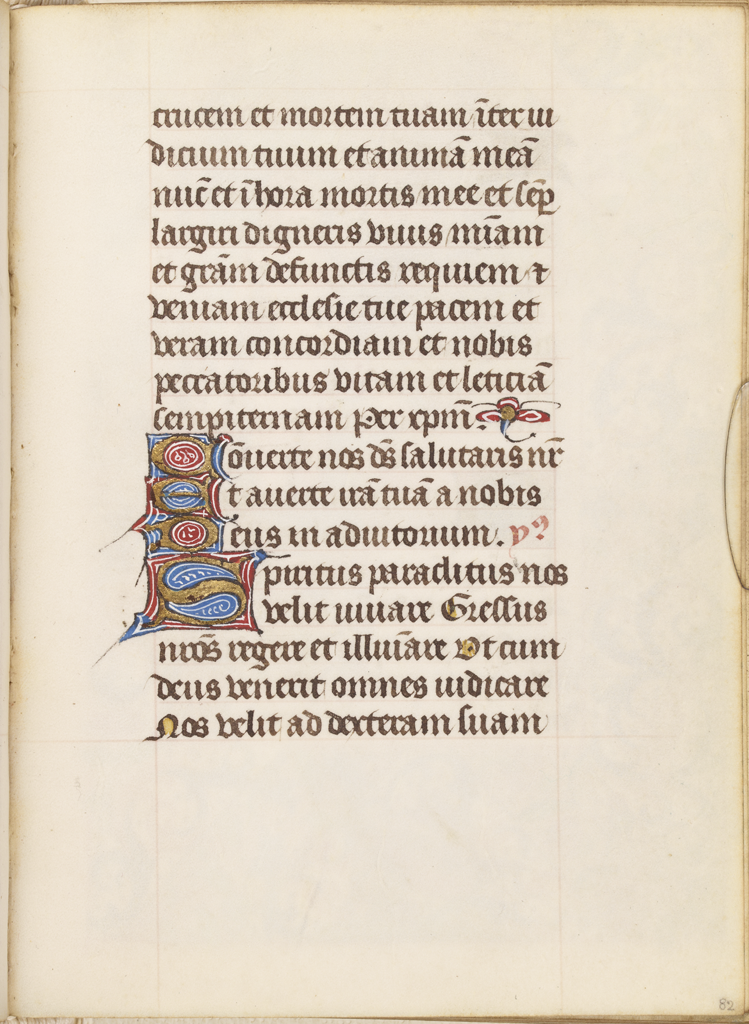 crucem et mortem tuam īter iu
dicium tuum et animā meā
nūc et ī hora mortis mee et sēp
largiri digneris viuis miam
et grām defunctis requiem ⁊
veniam ecclesie tue pacem et
veram concordiam et nobis
peccatoribus vitam et leticiā
sempiternam Per xpm̄.
Cōuerte nos ds̄ salutaris nr̄
Et auerte irā tuā a nobis
Deus in adiutorium. ymꝰ
Spiritus paraclitus nos
velit iuuare Gressus
nrōs regere et illuīare Vt cum
deus venerit omnes iudicare
Nos velit ad dexteram suam
82